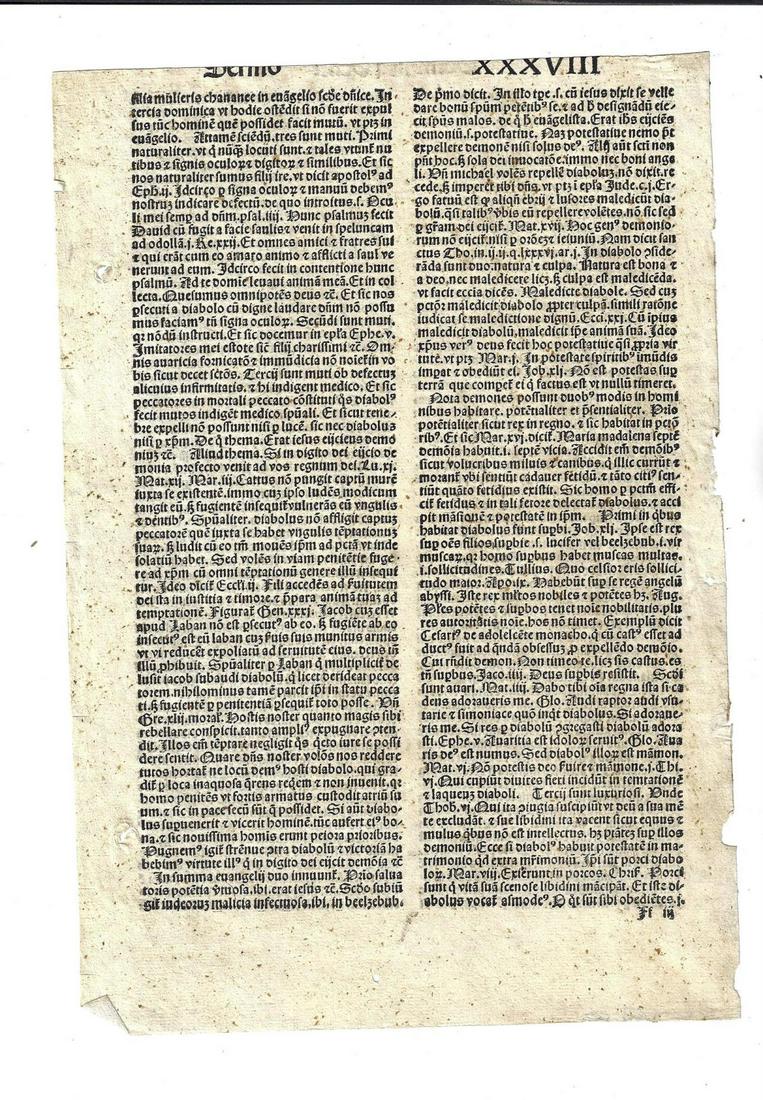 Sermo XXXVIII
filia mulieris chananee in euãgelio scde dñice. In
tercia dominica vt hodie ostẽdit si nõ fuerit expul
sus tũc hominẽ quẽ possidet facit mutũ. vt ptz in
euãgelio. Attamẽ sciẽdũ. tres sunt muti. Primi
naturaliter. vt q nũq̃ locuti sunt. ⁊ tales vtunẽ nu
tibus ⁊ signis oculoꝝ ⁊ digitoꝝ ⁊ similibus. Et sic
nos naturaliter sumus filij ire. vt dicit apostolꝰ ad
Eph̃. ij. Idcirco p signa oculoꝝ ⁊ manuũ debemꝰ
nostrũ indicare defectũ. de quo introitus. s. Ocu
li mei semꝑ ad dñm. psal. iiij. Hunc psalmũ fecit
Dauid cũ fugit a facie saulis ⁊ venit in speluncam
ad odollã. j. Re. xxij. Et omnes amici ⁊ fratres sui
⁊ qui erãt cum eo amaro animo ⁊ afflicti a saul ve
nerunt ad eum. Idcirco fecit in contentione hunc
psalmũ. Ad te domĩe leuaui animã meã. Et in col
lecta. Quesumus omnipotẽs deus ⁊c̃. Et sic nos
psecuti a diabolo cũ digne laudare dñm nõ possu
mus faciamꝰ tñ signa oculoꝝ. Secũdi sunt muti.
qr nõdũ instructi. Et sic docemur in epl̃a Ephe. v.
Imitatores mei estote sic̃ filij charissimi ⁊c̃. Om
nis auaricia fornicatõ ⁊ immũdicia nõ noiẽĩ in vo
bis sicut decet sctõs. Tercij sunt muti ob defectuz
alicuius infirmitatis. ⁊ hi indigent medico. Et sic
peccatores in mortali peccato cõstituti q̃s diabolꝰ
fecit mutos indigẽt medico spũali. Et sicut tene
bre expelli nõ possunt nisi p lucẽ. sic nec diabolus
nisi p xp̃m. De q̃ thema. Erat iesus eijciens demo
niuz ⁊c̃. Aliud thema. Si in digito dei eijcio de
monia profecto venit ad vos regnum dei. Lu. xj.
Mat. xij. Mar. iij. Cattus nõ pungit captũ murẽ
iuxta se existentẽ. immo cuz ipso ludẽs modicum
tangit eũ. sꝫ fugientẽ insequiẽ vulnerãs eũ vngulis
⁊ dentibꝰ. Spũaliter. diabolus nõ affligit captuz
peccatorẽ qui iuxta se habet vngulis tẽptationuz
suaꝝ. sꝫ ludit cũ eo tm̃ mouẽs ip̃m ad pctã vt inde
solatiũ habet. Sed volẽs in viam penitẽtie fuge
re ad xp̃m cũ omni tẽptationũ genere illũ insequi
tur. Ideo dicit̃ Eccl̃i. ij. Fili accedẽs ad s̃uitutem
dei sta in iustitia ⁊ timore. ⁊ p̃para animã tuaz ad
temptationẽ. Figurat̃ Gen. xxxj. Jacob cuz esset
apud Laban nõ est psecutꝰ ab eo. sꝫ fugiẽte ab eo
insecutꝰ est eũ laban cuz suis suis munitus armis
vt vi reducẽt expoliatũ ad seruitutẽ eius. deus tñ
illũ phibuit. Spũaliter p Laban q̃ multiplicit̃ de
lusit iacob subaudi diabolũ. q̃ licet derideat pecca
torem. nihilominus tamẽ parcit ip̃i in statu pecca
ti. sꝫ fugientẽ p penitentiã psequiẽ toto posse. Vñ
Gre. xlij. moral̃. Hostis noster quanto magis sibi
rebellare conspicit. tanto ampliꝰ expugnare ꝯten
dit. Illos em̃ tẽptare negligit q̃s q̃eto iure se possi
dere sentit. Quare dñs noster volẽs nos reddere
tutos hortat̃ ne locũ demꝰ hosti diabolo. qui gra
dit̃ p loca inaquosa q̃rens req̃em ⁊ non inuenit. qr
homo penitẽs vt fortis armatus custodit atriũ su
um. ⁊ sic in pace secũ sũt q̃ possidet. Si aũt diabo
lus supuenerit ⁊ vicerit hominẽ. tũc aufert eiꝰ bo
na. ⁊ sic nouissima homis erunt peiora prioribus.
Pugnemꝰ igit̃ strẽnue ꝯtra diabolũ ⁊ victoriã ha
bebimꝰ virtute illꝰ q̃ in digito dei eijcit demõia ⁊c̃
In summa euangelij duo innuunẽ. Prio salua
toris potẽtia v̓tuosa. ibi. erat iesus ⁊c̃. Scdo subiũ
git̃ iudeorũ malicia infectuosa. ibi. in beelzebub.
De pmo dicit. In illo tpe. s. cũ iesus dixit se velle
dare bonũ spũm petẽtibꝰ se. ⁊ ad h̃ designãdũ eie
cit spũs malos. de q̃ h̃ euangelista. Erat ih̃s eijciẽs
demoniũ. s. potestatiue. Naz potestatiue nemo p̃t
expellere demonẽ nisi solus deꝰ. Alij aũt scti non
pñt hoc. sꝫ sola dei inuocatõe. immo nec boni ange
li. Vñ michael volẽs repellẽ diaboluz. nõ dixit. re
cede. sꝫ imperet tibi dñs. vt ptz i epl̃a Jude. c. j. Er
go fatuũ est q̃ aliqñ ebrij ⁊ lusores maledicũt dia
bolũ. q̃si talibꝰ v̓bis eũ repellere volẽtes. nõ sic sed
p grãm dei eijcit̃. Mat. xvij. Hoc genꝰ demonio
rum nõ eijcit̃. nisi p orõez ⁊ ieiuniũ. Nam dicit san
ctus Tho. in. ij. ij. q. lxxxvj. ar. j. In diabolo ꝯside
rãda sunt duo. natura ⁊ culpa. Natura est bona ⁊
a deo. nec maledicere licz. sꝫ culpa est maledicẽda.
vt facit ecc̃ia dicẽs. Maledicte diabole. Sed cuz
pctõr maledicit diabolo ꝓpter culpã. simili ratõne
iudicat se maledictione dignũ. Ecci. xxj. Cũ ip̃ius
maledicit diabolũ. maledicit ip̃e animã suã. Ideo
xp̃us verꝰ deus fecit hoc potestatiue q̃si ꝓpria vir
tutẽ. vt ptz Mar. j. In potestate spiritibꝰ imũdis
impat ⁊ obediũt ei. Job. xlj. Nõ est potestas sup
terrã que compet̃ ei q̃ factus est vt nullũ timeret.
Nota demones possunt duobꝰ modis in homi
nibus habitare. potẽtialiter et p̃sentialiter. Prio
potẽtialiter sicut rex in regno. ⁊ sic habitat in pctõ
ribꝰ. Et sic Mar. xvj. dicit̃. Maria madalena septẽ
demõia habuit. i. septẽ vicia. Accidit em̃ demõibꝰ
sicut volucribus miluis ⁊ canibus. q̃ illic currũt ⁊
moranẽ vbi sentiũt cadauer fetidũ. ⁊ tãto citiꝰ sen
tiũt quãto fetidius existit. Sic homo p pctm̃ effi
cit̃ fetidus ⁊ in tali fetore delectat̃ diabolus. ⁊ acci
pit mãsionẽ ⁊ potestatẽ in ip̃m. Primi in q̃bus
habitat diabolus sunt supbi. Job. xlj. Ip̃e est rex
sup oẽs filios supbie. s. lucifer vel beelzebub. i. vir
muscaꝝ. qr homo supbus habet muscas multas.
i. sollicitudines. Tullius. Quo celsior eris sollici
tudo maior. Apo. ix. Habebũt sup se regẽ angelũ
abyssi. Iste rex mltos nobiles ⁊ potẽtes hz. Aug.
Pl̃es potẽtes ⁊ supbos tenet noĩe nobilitatis. plu
res autoritãtis noĩe. hos nõ timet. Exemplũ dicit
Cesariꝰ de adolescẽte monacho. q̃ cũ castꝰ esset ad
ductꝰ fuit ad q̃ndã obsessuz ꝓ expellẽdo demõio.
Cui rñdit demon. Non timeo te. licz sis castus. es
tñ supbus. Jaco. iiij. Deus supbis resistit. Scdi
sunt auari. Mat. iiij. Dabo tibi oĩa regna ista si ca
dens adoraueris me. Glo. Audi raptor audi vsu
rarie ⁊ simoniace quo inqt̃ diabolus. Si adoraue
ris me. Si res p diabolũ ꝯgregasti diabolũ adora
sti. Ephe. v. Auaritia est idoloꝝ seruitꝰ. Glo. Aua
ris deꝰ est numus. Sed diabolꝰ illoꝝ est mãmon.
Mat. vj. Nõ potestis deo s̃uire ⁊ mãmone. j. Thi.
vj. Qui cupiũt diuites fieri incidũt in temtationẽ
⁊ laqueuz diaboli. Tercij sunt luxuriosi. Vnde
Thob. vj. Qui ita ꝯiugia suscipiũt vt deũ a sua mẽ
te excludãt. ⁊ sue libidini ita vacent sicut equus ⁊
mulus q̃bus nõ est intellectus. hz p̃tatez sup illos
demoniũ. Ecce si diabolꝰ habuit potestatẽ in ma
trimonio qd̃ extra mr̃imoniũ. Ip̃i sũt porci diabo
loꝝ. Mar. viij. Exierunt in porcos. Chris̃. Porci
sunt q̃ vitã suã scenose libidini mãcipãt. Et iste di
abolus vocat̃ asmodeꝰ. D q̃t sũt sibi obediẽtes. j.
Ff iij